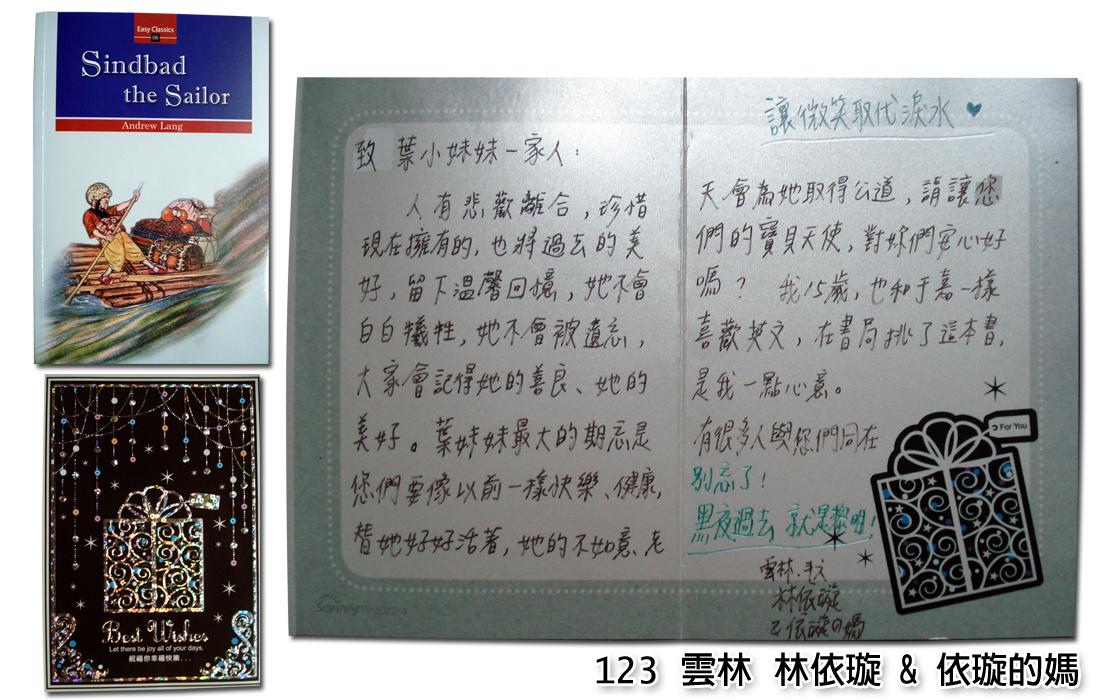 Easy Classics
06
Sindbad
the Sailor
Andrew Lang
Best Wishes
Let there be joy all of your days.
祝福你幸福快樂...
致 葉小妹妹一家人：
人有悲歡離合，珍惜
現在擁有的，也將過去的美
好，留下溫馨回憶，她不會
白白犧牲，她不會被遺忘，
大家會記得她的善良、她的
美好。葉妹妹最大的期忘是
您們要像以前一樣快樂、健康，
替她好好活著，她的不如意、老
讓微笑取代淚水 ♥
天會為她取得公道，請讓您
們的寶貝天使，對妳們安心好
嗎？ 我15歲，也和于嘉一樣
喜歡英文，在書局挑了這本書，
是我一點心意。
有很多人與您們同在
別忘了！
黑夜過去 就是黎明！
雲林
林依璇
&依璇の媽
For You
123 雲林 林依璇 & 依璇的媽